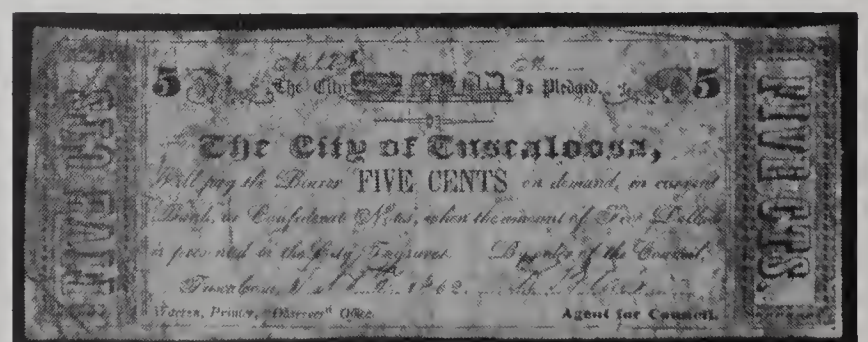 FIVE CTS
5 The City Is Pledged 5
The City of Tuscaloosa,
Will pay the Bearer FIVE CENTS on demand, in current
Bank, or Confederate Notes, when the amount of Five Dollars
is presented to the City Treasurer. By order of the Council.
Tuscaloosa, 1862.
Warren, Printer, "Observer" Office.
Agent for Council.
FIVE CTS.